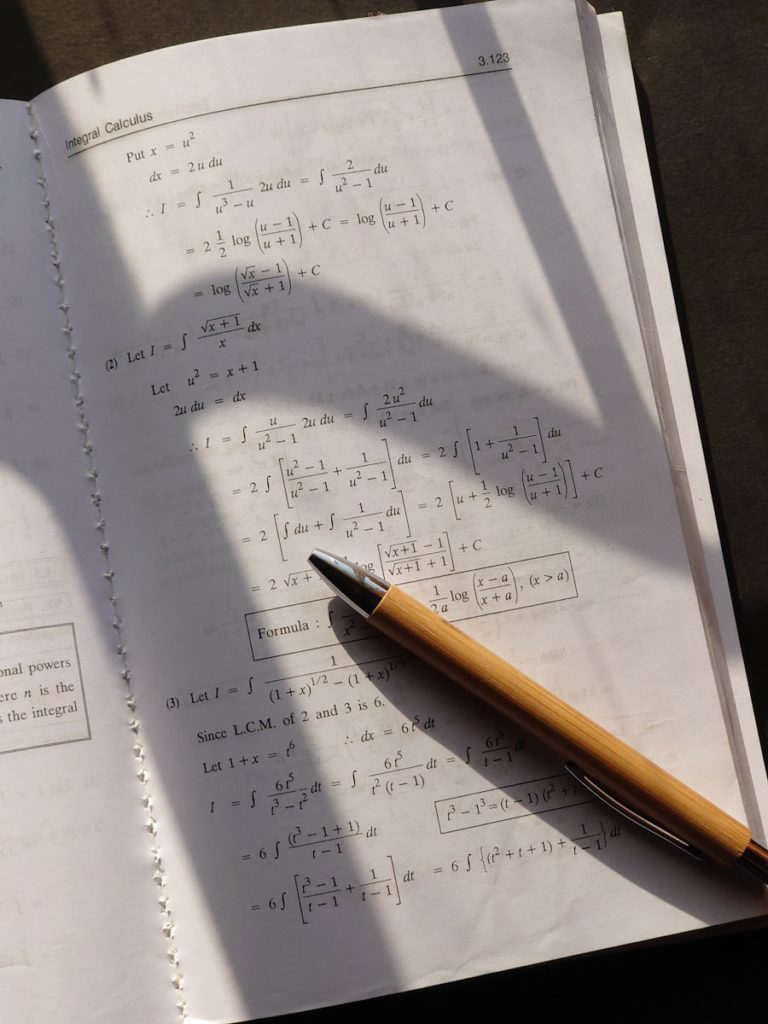 onal powers
ere n is the
s the integral
Integral Calculus 3.123
Put x = u²
dx = 2u du
∴ I = ∫ 1/(u³ − u) 2u du = ∫ 2/(u² − 1) du
= 2 1/2 log ((u − 1)/(u + 1)) + C = log ((u − 1)/(u + 1)) + C
= log ((√x − 1)/(√x + 1)) + C
(2) Let I = ∫ √(x + 1)/x dx
Let u² = x + 1
2u du = dx
∴ I = ∫ u/(u² − 1) 2u du = ∫ 2u²/(u² − 1) du
= 2 ∫ [(u² − 1)/(u² − 1) + 1/(u² − 1)] du = 2 ∫ [1 + 1/(u² − 1)] du
= 2 [∫ du + ∫ 1/(u² − 1) du] = 2 [u + 1/2 log ((u − 1)/(u + 1))] + C
= 2 √x + log [(√(x+1) − 1)/(√(x+1) + 1)] + C
Formula : ∫ x² 1/2a log ((x − a)/(x + a)), (x > a)
(3) Let I = ∫ 1/((1 + x)^1/2 − (1 + x)^1/3
Since L.C.M. of 2 and 3 is 6.
Let 1 + x = t⁶ ∴ dx = 6t⁵ dt
I = ∫ 6t⁵/(t³ − t²) dt = ∫ 6t⁵/(t² (t − 1)) dt = ∫ 6t³/(t − 1) dt
t³ − 1³ = (t − 1) (t² + t
= 6 ∫ (t³ − 1 + 1)/(t − 1) dt
= 6 ∫ [(t³ − 1)/(t − 1) + 1/(t − 1)] dt = 6 ∫ {(t² + t + 1) + 1/(t − 1)} dt